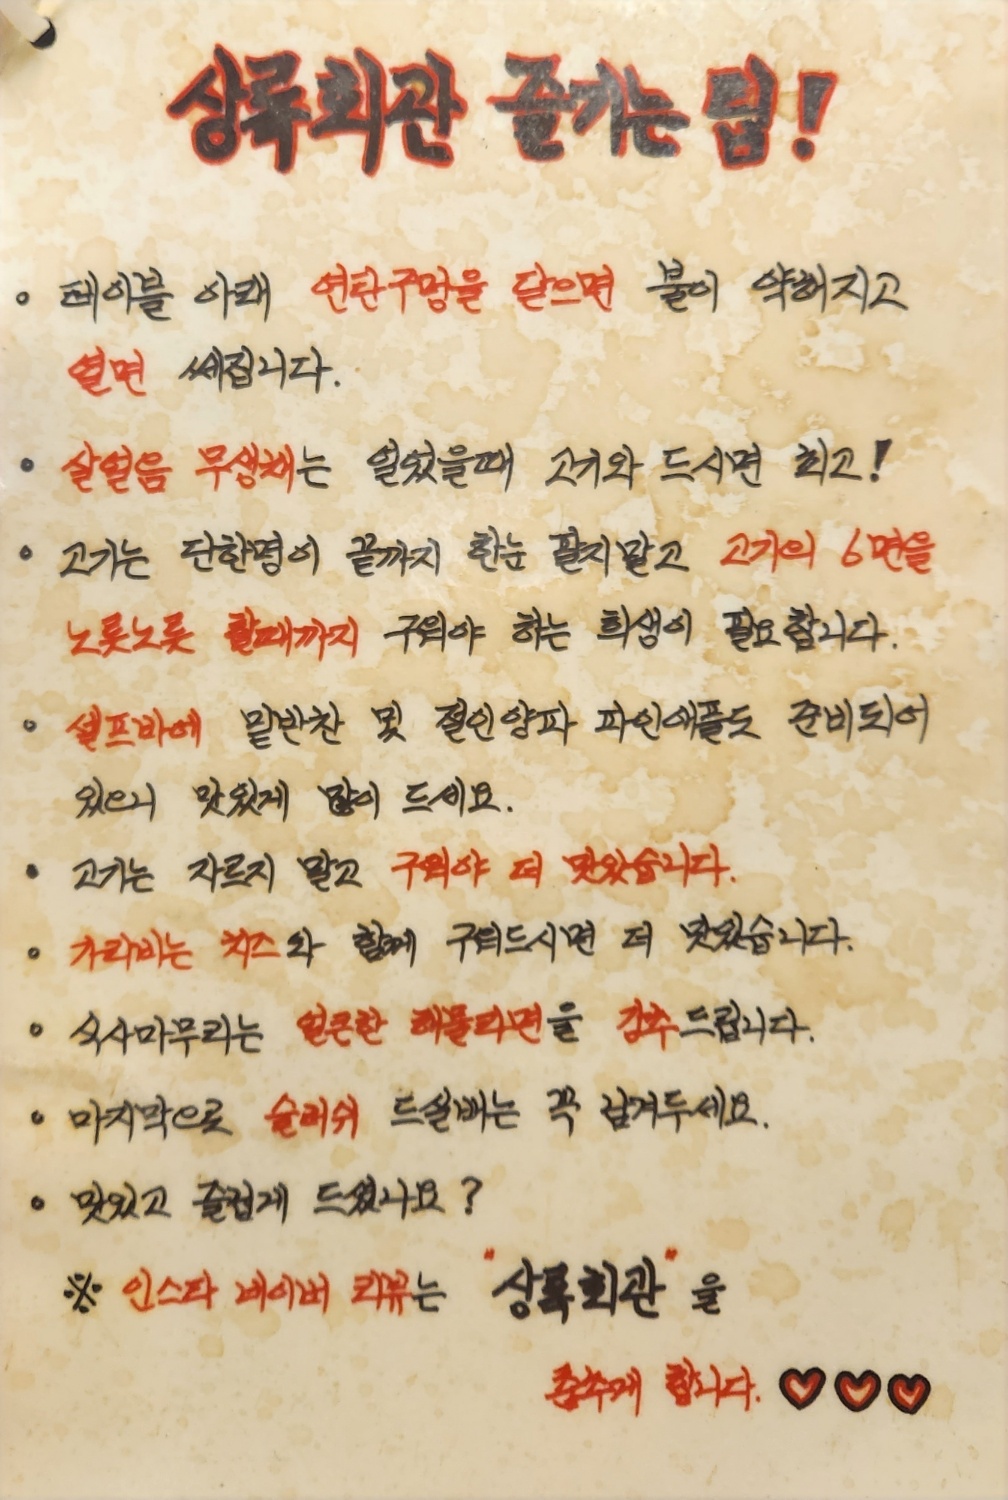 상류회관 즐기는 팁!
테이블 아래 연탄구멍을 닫으면 불이 약해지고
열면 쎄집니다.
살얼음 무생채는 얼었을때 고기와 드시면 최고!
고기는 단한명이 끝까지 한눈 팔지말고 고기의 6면을
노릇노릇 할때까지 구워야 하는 희생이 필요합니다.
셀프바에 밑반찬 및 절인양파 파인애플도 준비되어
있으니 맛있게 많이 드세요.
고기는 자르지 말고 구워야 더 맛있습니다.
가리비는 치즈와 함께 구워드시면 더 맛있습니다.
식사마무리는 얼큰한 해물라면을 강추드립니다.
마지막으로 슬러쉬 드실배는 꼭 남겨두세요.
맛있고 즐겁게 드셨나요?
※ 인스타 네이버 리뷰는 "상류회관"을
춤추게 합니다.